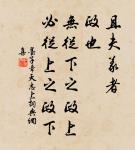 且夫義者
政也
無從下之政上
必從上之政下
墨子天志上詞典網
集